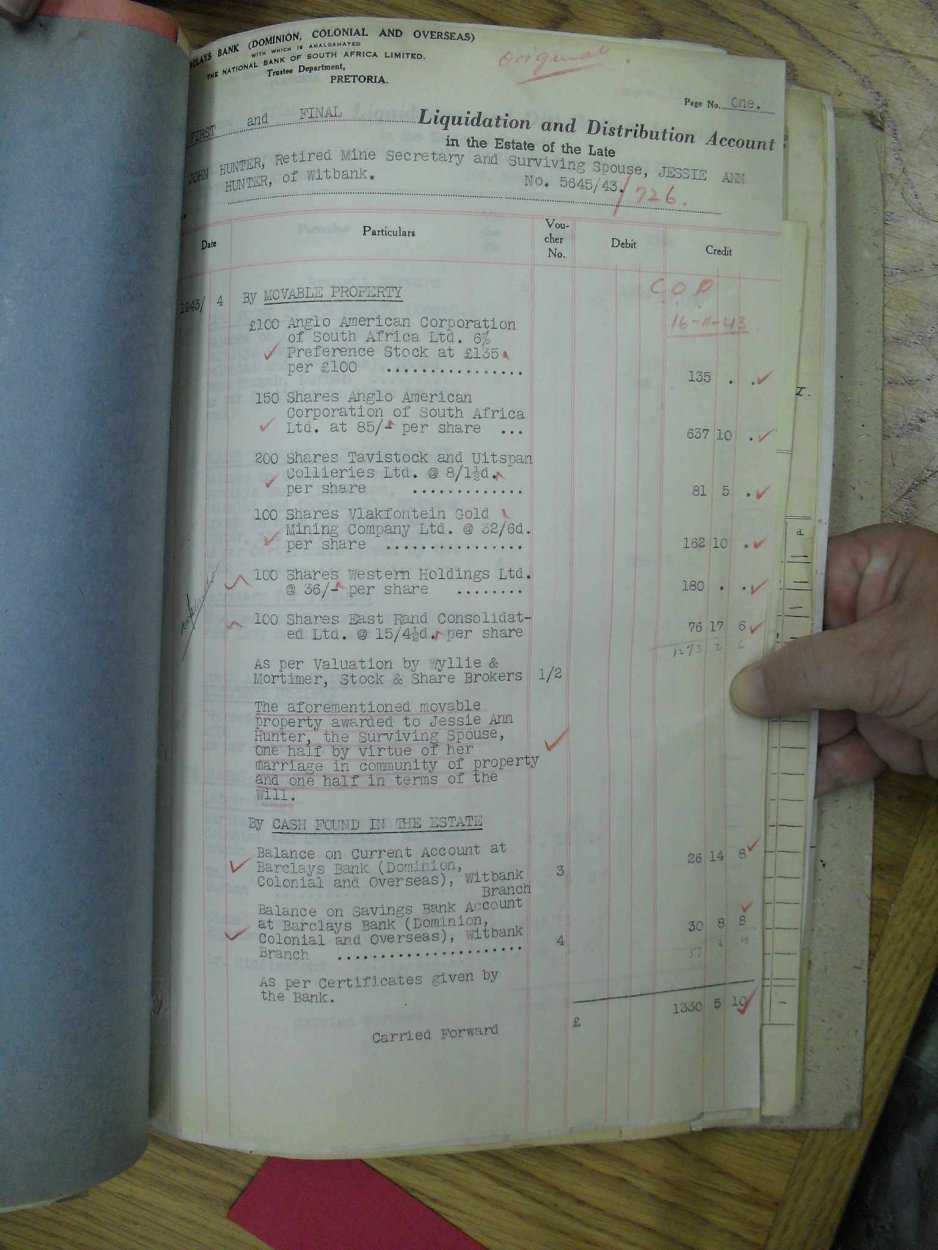 CLAYS BANK (DOMINION, COLONIAL AND OVERSEAS)
WITH WHICH IS AMALGAMATED
THE NATIONAL BANK OF SOUTH AFRICA LIMITED.
Trustee Department,
PRETORIA.
Original.
Page No. One.
FIRST and FINAL Liquidation and Distribution Account
in the Estate of the Late
JOHN HUNTER, Retired Mine Secretary and Surviving Spouse, JESSIE ANN
HUNTER, of Witbank. No. 5645/43./726.
Date Particulars Vou-cher No. Debit Credit
C.O.P
16-11-43
1943/ 4 By MOVABLE PROPERTY
£100 Anglo American Corporation
of South Africa Ltd. 6%
Preference Stock at £135
per £100 ................ 135 . .
150 Shares Anglo American
Corporation of South Africa
Ltd. at 85/- per share ... 637 10 .
200 Shares Tavistock and Uitspan
Collieries Ltd. @ 8/1½d.
per share ............. 81 5 .
100 Shares Vlakfontein Gold
Mining Company Ltd. @ 32/6d.
per share ................ 162 10 .
100 Shares Western Holdings Ltd.
@ 36/- per share ........ 180 . .
100 Shares East Rand Consolidat-
ed Ltd. @ 15/4½d. per share 76 17 6
1273 2 6
As per Valuation by Wyllie &
Mortimer, Stock & Share Brokers 1/2
The aforementioned movable
property awarded to Jessie Ann
Hunter, the Surviving Spouse,
one half by virtue of her
marriage in community of property
and one half in terms of the
Will.
By CASH FOUND IN THE ESTATE
Balance on Current Account at
Barclays Bank (Dominion,
Colonial and Overseas), Witbank
Branch 3 26 14 8
Balance on Savings Bank Account
at Barclays Bank (Dominion,
Colonial and Overseas), Witbank
Branch ....................... 4 30 8 8
57 3 4
As per Certificates given by
the Bank.
Carried Forward £ 1330 5 10